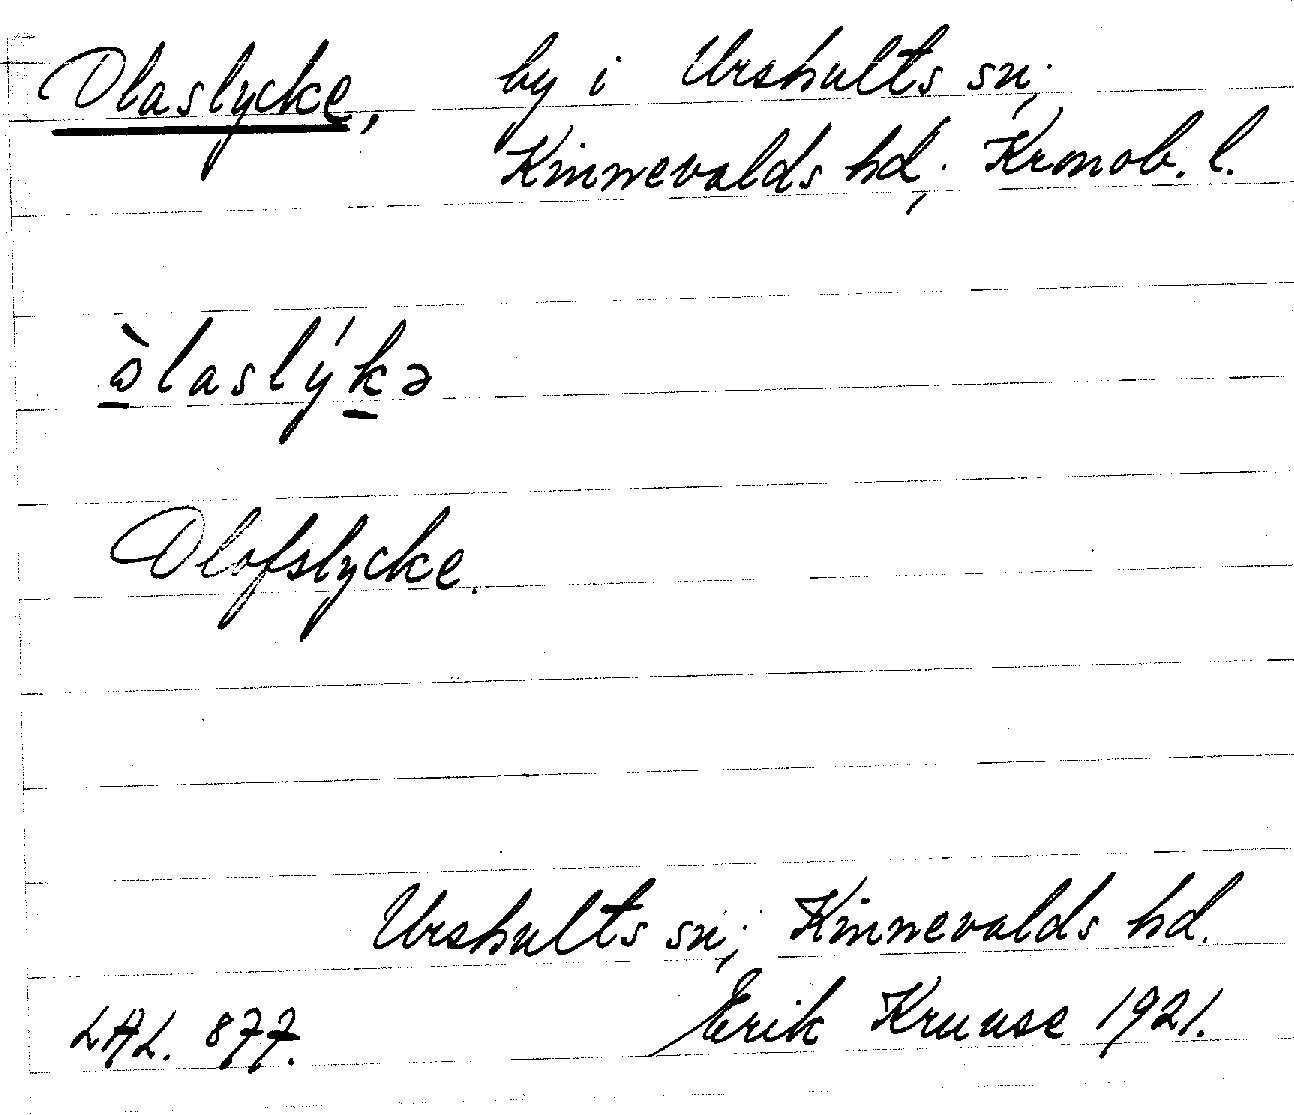 Olaslycke, by i Urshults sn;
Kinnevalds hd, Kronob. l.
òlaslýkə
Olofslycke.
Urshults sn; Kinnevalds hd.
LAL. 877. Erik Kruuse 1921.